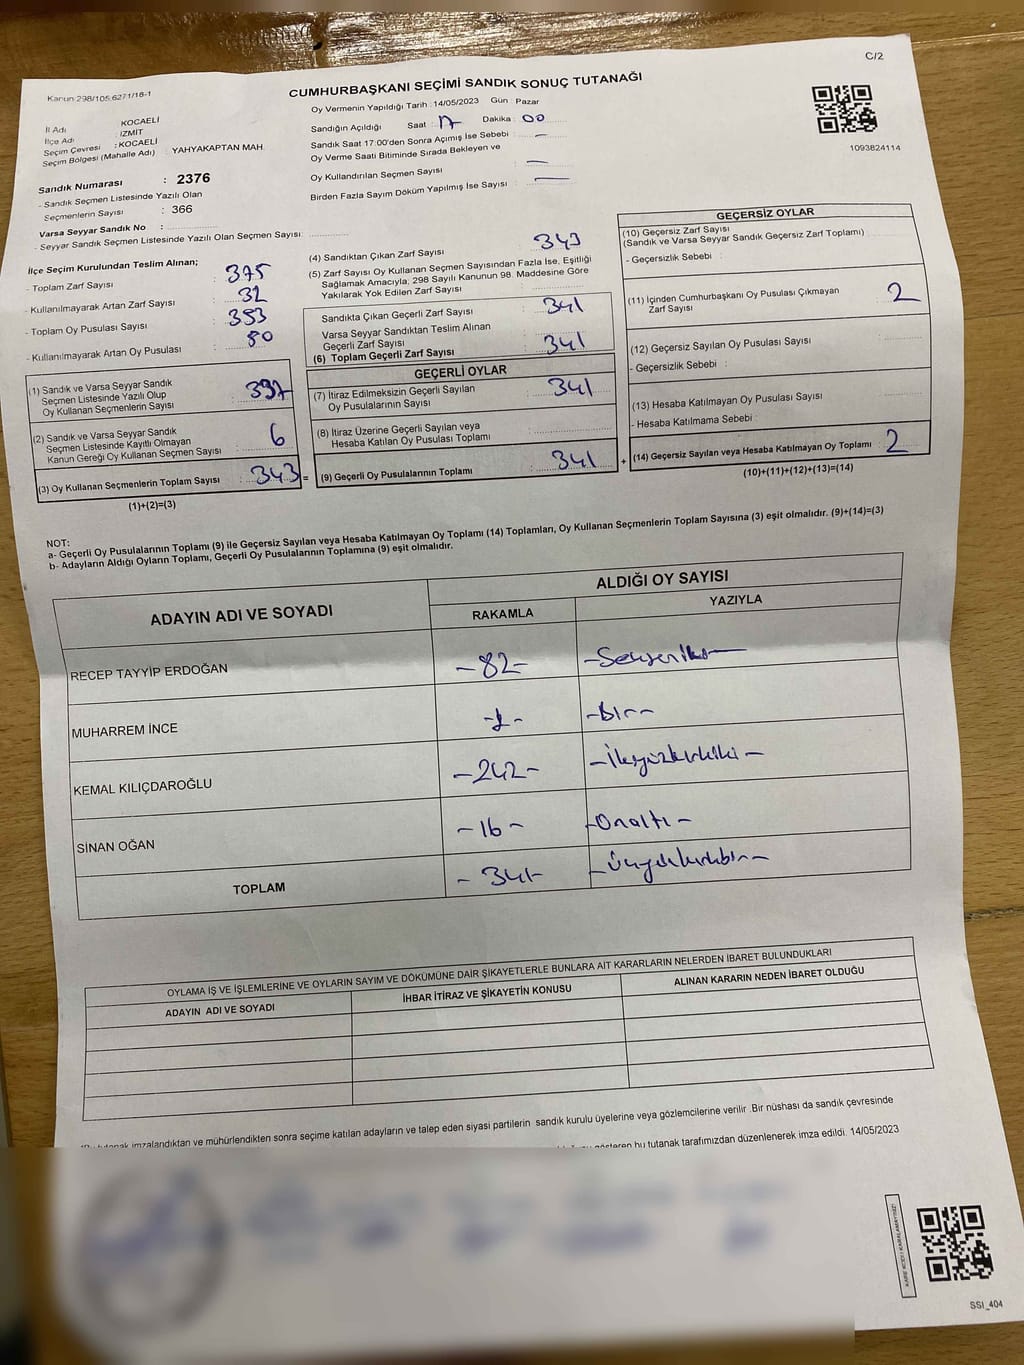 C/2
Kanun:298/105;6271/18-1
CUMHURBAŞKANI SEÇİMİ SANDIK SONUÇ TUTANAĞI
Oy Vermenin Yapıldığı Tarih : 14/05/2023 Gün : Pazar
İl Adı : KOCAELİ
İlçe Adı : İZMİT
Seçim Çevresi : KOCAELİ
Seçim Bölgesi (Mahalle Adı) : YAHYAKAPTAN MAH.
Sandığın Açıldığı Saat : 17 Dakika : 00
Sandık Saat 17:00'den Sonra Açımış İse Sebebi : —
Oy Verme Saati Bitiminde Sırada Bekleyen ve
Oy Kullandırılan Seçmen Sayısı : —
Birden Fazla Sayım Döküm Yapılmış İse Sayısı : —
1093824114
Sandık Numarası : 2376
- Sandık Seçmen Listesinde Yazılı Olan
Seçmenlerin Sayısı : 366
Varsa Seyyar Sandık No :
- Seyyar Sandık Seçmen Listesinde Yazılı Olan Seçmen Sayısı:
İlçe Seçim Kurulundan Teslim Alınan;
- Toplam Zarf Sayısı : 375
- Kullanılmayarak Artan Zarf Sayısı : 32
- Toplam Oy Pusulası Sayısı : 353
- Kullanılmayarak Artan Oy Pusulası : 80
(1) Sandık ve Varsa Seyyar Sandık
Seçmen Listesinde Yazılı Olup
Oy Kullanan Seçmenlerin Sayısı : 337
(2) Sandık ve Varsa Seyyar Sandık
Seçmen Listesinde Kayıtlı Olmayan
Kanun Gereği Oy Kullanan Seçmen Sayısı : 6
(3) Oy Kullanan Seçmenlerin Toplam Sayısı : 343 =
(1)+(2)=(3)
(4) Sandıktan Çıkan Zarf Sayısı : 343
(5) Zarf Sayısı Oy Kullanan Seçmen Sayısından Fazla İse, Eşitliği
Sağlamak Amacıyla, 298 Sayılı Kanunun 98. Maddesine Göre
Yakılarak Yok Edilen Zarf Sayısı :
Sandıkta Çıkan Geçerli Zarf Sayısı : 341
Varsa Seyyar Sandıktan Teslim Alınan
Geçerli Zarf Sayısı :
(6) Toplam Geçerli Zarf Sayısı : 341
GEÇERLİ OYLAR
(7) İtiraz Edilmeksizin Geçerli Sayılan
Oy Pusulalarının Sayısı : 341
(8) İtiraz Üzerine Geçerli Sayılan veya
Hesaba Katılan Oy Pusulası Toplamı :
(9) Geçerli Oy Pusulalarının Toplamı : 341 +
GEÇERSİZ OYLAR
(10) Geçersiz Zarf Sayısı
(Sandık ve Varsa Seyyar Sandık Geçersiz Zarf Toplamı) :
- Geçersizlik Sebebi :
(11) İçinden Cumhurbaşkanı Oy Pusulası Çıkmayan
Zarf Sayısı : 2
(12) Geçersiz Sayılan Oy Pusulası Sayısı :
- Geçersizlik Sebebi :
(13) Hesaba Katılmayan Oy Pusulası Sayısı :
- Hesaba Katılmama Sebebi :
(14) Geçersiz Sayılan veya Hesaba Katılmayan Oy Toplamı : 2
(10)+(11)+(12)+(13)=(14)
NOT:
a- Geçerli Oy Pusulalarının Toplamı (9) ile Geçersiz Sayılan veya Hesaba Katılmayan Oy Toplamı (14) Toplamları, Oy Kullanan Seçmenlerin Toplam Sayısına (3) eşit olmalıdır. (9)+(14)=(3)
b- Adayların Aldığı Oyların Toplamı, Geçerli Oy Pusulalarının Toplamına (9) eşit olmalıdır.
ADAYIN ADI VE SOYADI
ALDIĞI OY SAYISI
RAKAMLA YAZIYLA
RECEP TAYYİP ERDOĞAN -82- -Sekseniki-
MUHARREM İNCE -1- -bir-
KEMAL KILIÇDAROĞLU -242- -İkiyüzkırkiki-
SİNAN OĞAN -16- -Onaltı-
TOPLAM -341- -Üçyüzkırkbir-
OYLAMA İŞ VE İŞLEMLERİNE VE OYLARIN SAYIM VE DÖKÜMÜNE DAİR ŞİKAYETLERLE BUNLARA AİT KARARLARIN NELERDEN İBARET BULUNDUKLARI
ADAYIN ADI VE SOYADI İHBAR İTİRAZ VE ŞİKAYETİN KONUSU ALINAN KARARIN NEDEN İBARET OLDUĞU
tutanak imzalandıktan ve mühürlendikten sonra seçime katılan adayların ve talep eden siyasi partilerin sandık kurulu üyelerine veya gözlemcilerine verilir .Bir nüshası da sandık çevresinde
gösteren bu tutanak tarafımızdan düzenlenerek imza edildi. 14/05/2023
KARE KODU KARALAMAYINIZ!
SSI_404